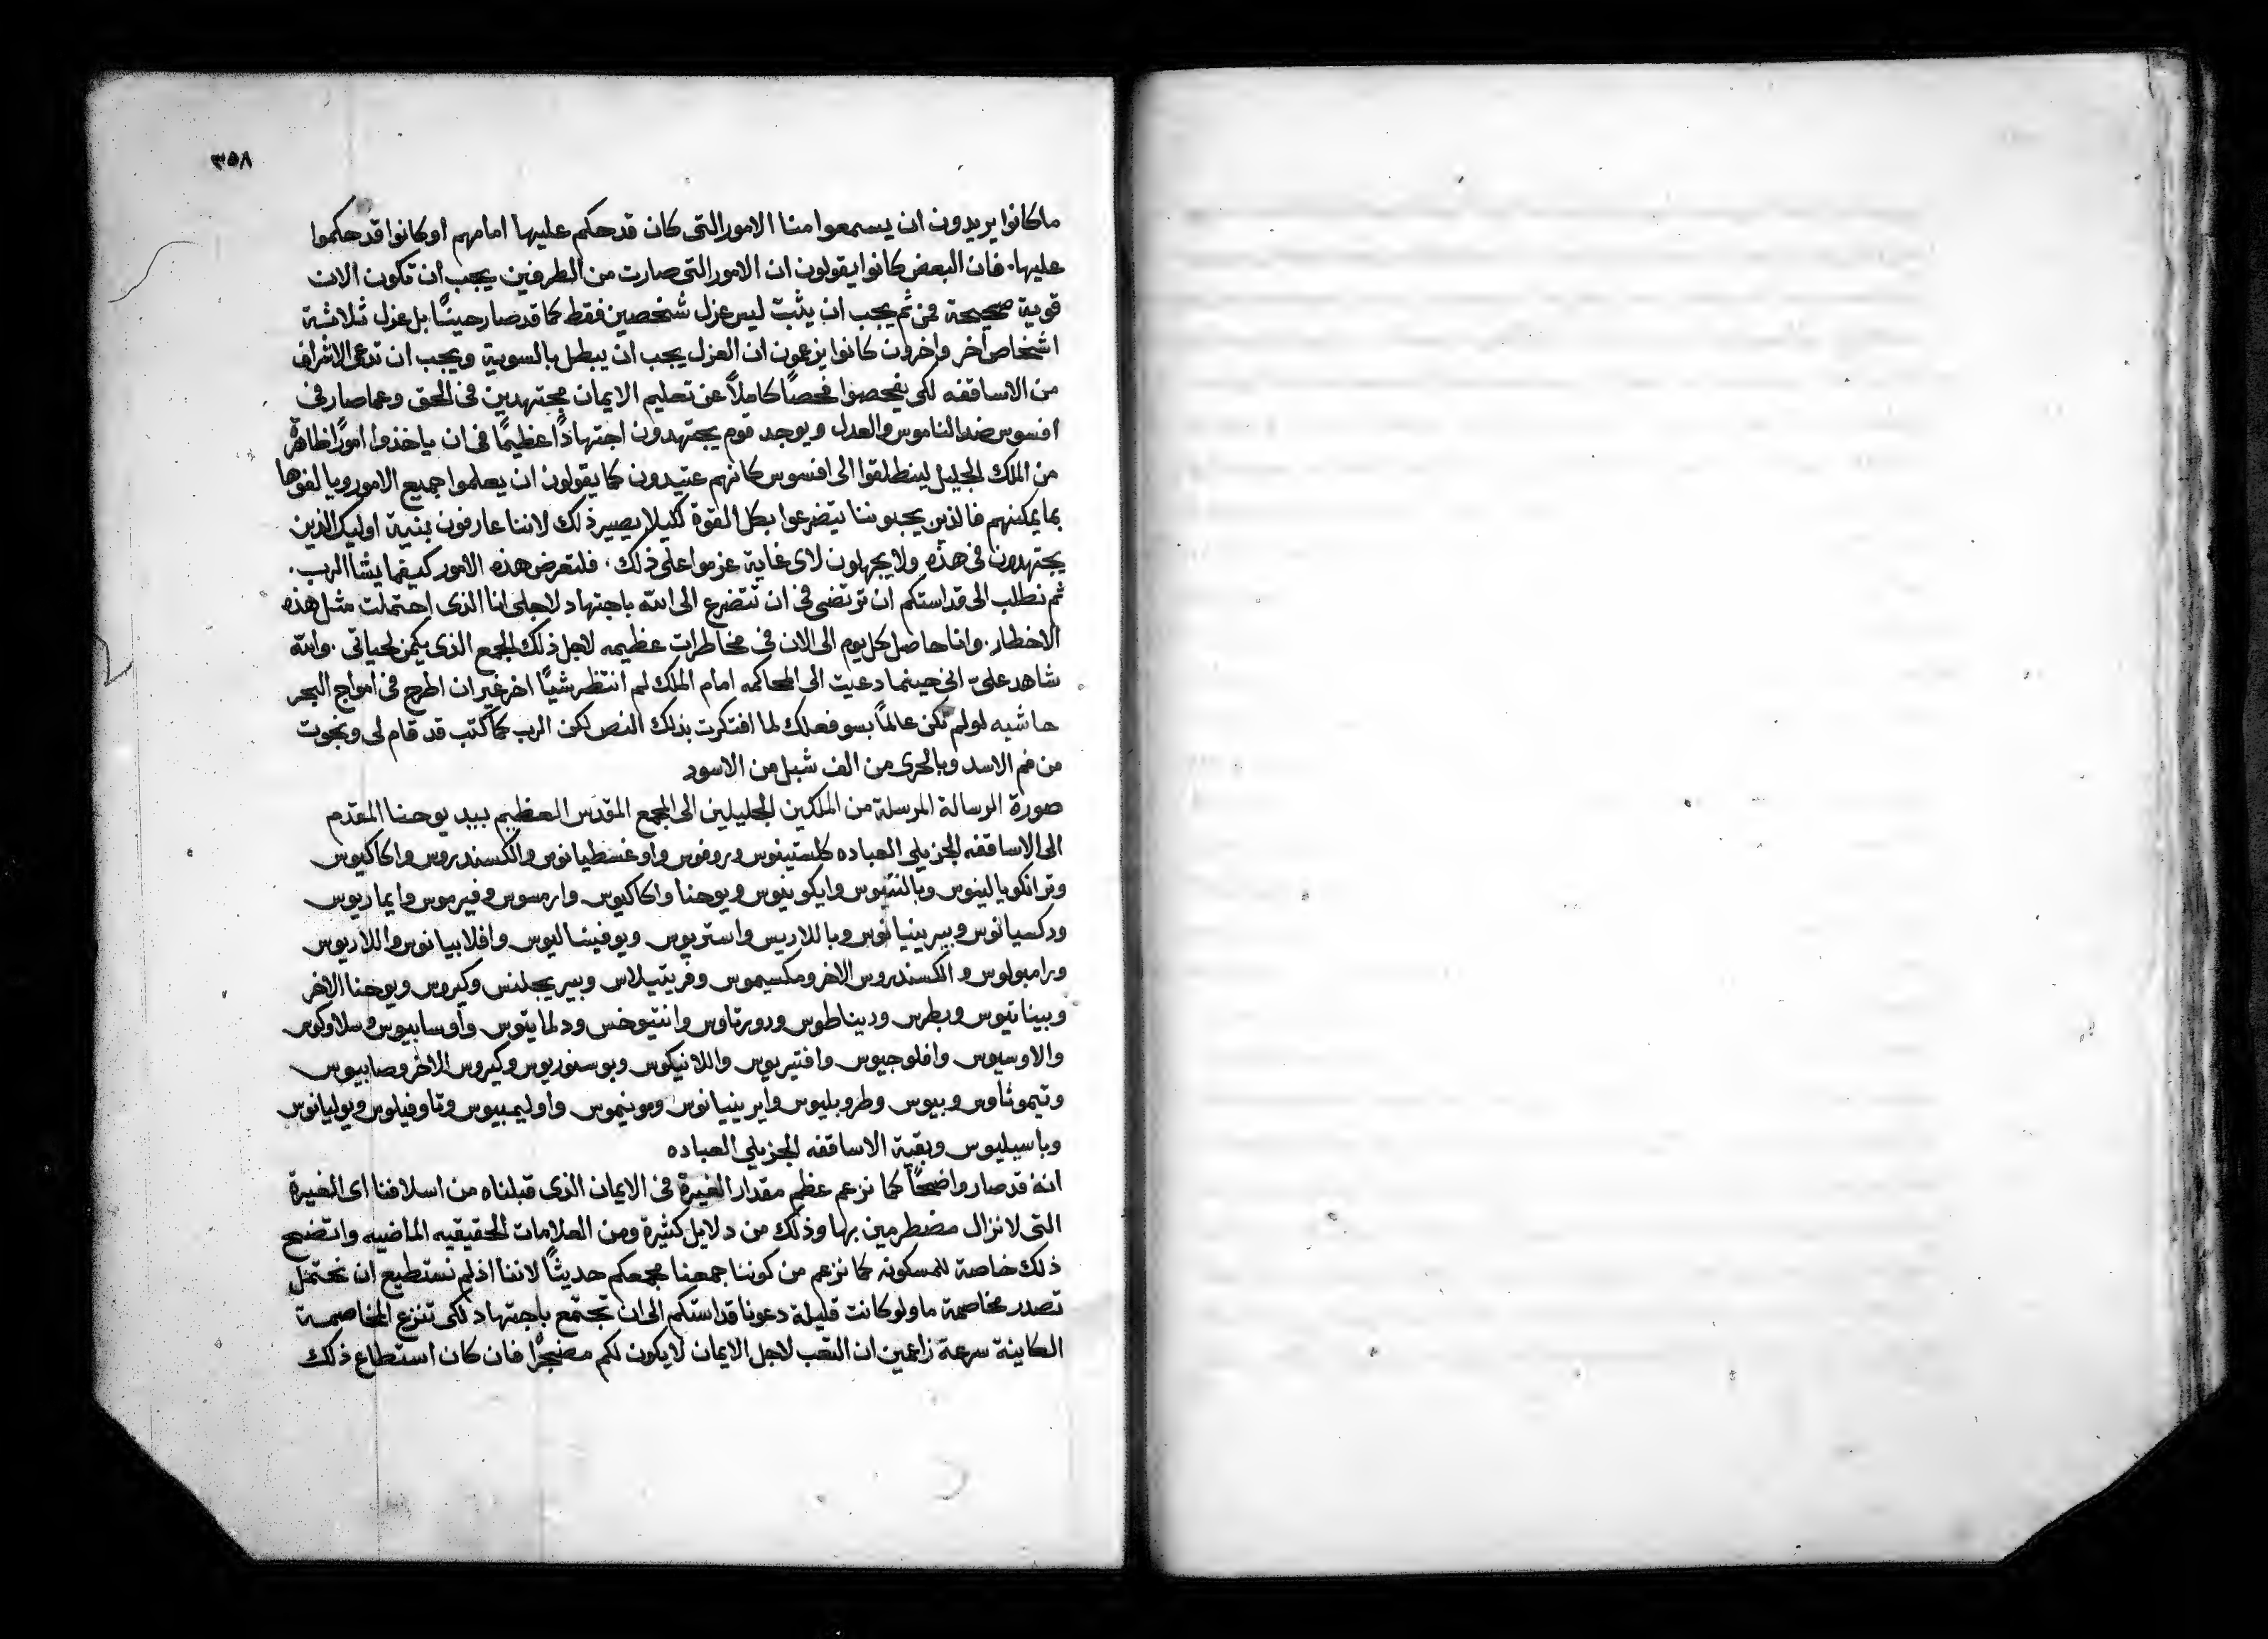 ٣٥٨
ما كانوا يريدون ان يسمعوا منا الامور التى كان قد حكم عليها امامهم او كانوا قد حكموا
عليها. فان البعض كانوا يقولون ان الامور التى صارت من الطرفين يجب ان تكون الان
قوية صحيحة فمن ثم يجب ان يثبت ليس عزل شخصين فقط كما قد صار حينئذ بل عزل ثلاثة
اشخاص اخر واخرون كانوا يزعمون ان العزل يجب ان يبطل بالسوية ويجب ان تدعى الاشراف
من الاساقفه لكى يفحصوا فحصًا كاملاً عن تعليم الايمان مجتهدين فى الحق وعما صار فى
افسوس ضد الناموس والعدل ويوجد قوم يجتهدون اجتهادًا عظيمًا فى ان ياخذوا امورًا ظاهرة
من الملك الجليل لينطلقوا الى افسوس كانهم عتيدون كما يقولون ان يعلموا جميع الامور ويالفوها
بما يمكنهم فالذين يحبوننا يتضرعوا بكل القوة لكيلا يصير ذلك لاننا عارفون بنية اوليك الذين
يجتهدون فى هذه ولا يجهلون لاى غاية عزموا على ذلك، فلتعرض هذه الامور كيفما يشا الرب.
ثم نطلب الى قداستكم ان ترتضى فى ان تتضرع الى الله باجتهاد لاجلى انا الذى احتملت مثل هذه
الاخطار. وانا حاصل كل يوم الى الان فى مخاطرات عظيمه لاجل ذلك الجمع الذى يكمن لحياتى. والله
شاهد علىّ انى حينما دعيت الى المحاكمه امام الملك لم انتظر شيًا اخر غير ان اطرح فى امواج البحر
حاشيه لو لم تكن عالمًا بسو فعلك لما افتكرت بذلك النص لكن الرب كما كتب قد قام لى ونجوت
من فم الاسد وبالحرى من الف شبل من الاسود
صورة الرسالة المرسلة من الملكين الجليلين الى المجمع المقدس العظيم بيد يوحنا المقدم
الى الاساقفه الجزيلى العباده كلستينوس وروفوس واوغسطيانوس والكسندروس واكاكيوس
وترانكويالينوس وبالنتيوس وايكونيوس ويوحنا واكاكيوس وارمسوس وفيرموس وايماريوس
ودكسيانوس وبيرينيانوس وباللاريس واستريوس ويوفيناليوس وافلابيانوس واللاريوس
ورامبولوس والكسندروس الاخر ومكسيموس وفريتيلاس وبيريجلنس وكيروس ويوحنا الاخر
وبيناتيوس وبطرس وديناطوس ودورتاوس وانتيوخس ودلمايتوس واوسابيوس وسلاوكوس
والاوسيوس وافلوجيوس وافتيريوس واللانيكوس وبوسنوريوس وكيروس الاخر وصابيوس
وتيموثاوس وبيوس وطروبليوس وايرينيانوس ومونيموس واوليمبيوس وتاوفيلوس ويوليانوس
وباسيليوس وبقية الاساقفه الجزيلى العباده
انه قد صار واضحًا كما نزعم عظم مقدار الغيرة فى الايمان الذى قبلناه من اسلافنا اى الغيرة
التى لا نزال مضطرمين بها وذلك من دلايل كثيرة ومن العلامات الحقيقيه الماضيه واتضح
ذلك خاصة للمسكونه كما نزعم من كوننا جمعنا مجمعكم حديثًا لاننا اذ لم نستطيع ان نحتمل
تصدر مخاصمة ما ولو كانت قليلة دعونا قداستكم الى ان تجتمع باجتهاد لكى تنزع المخاصمة
الكاينة سرعة زاعمين ان التعب لاجل الايمان لا يكون لكم مضجرًا فان كان استطاع ذلك